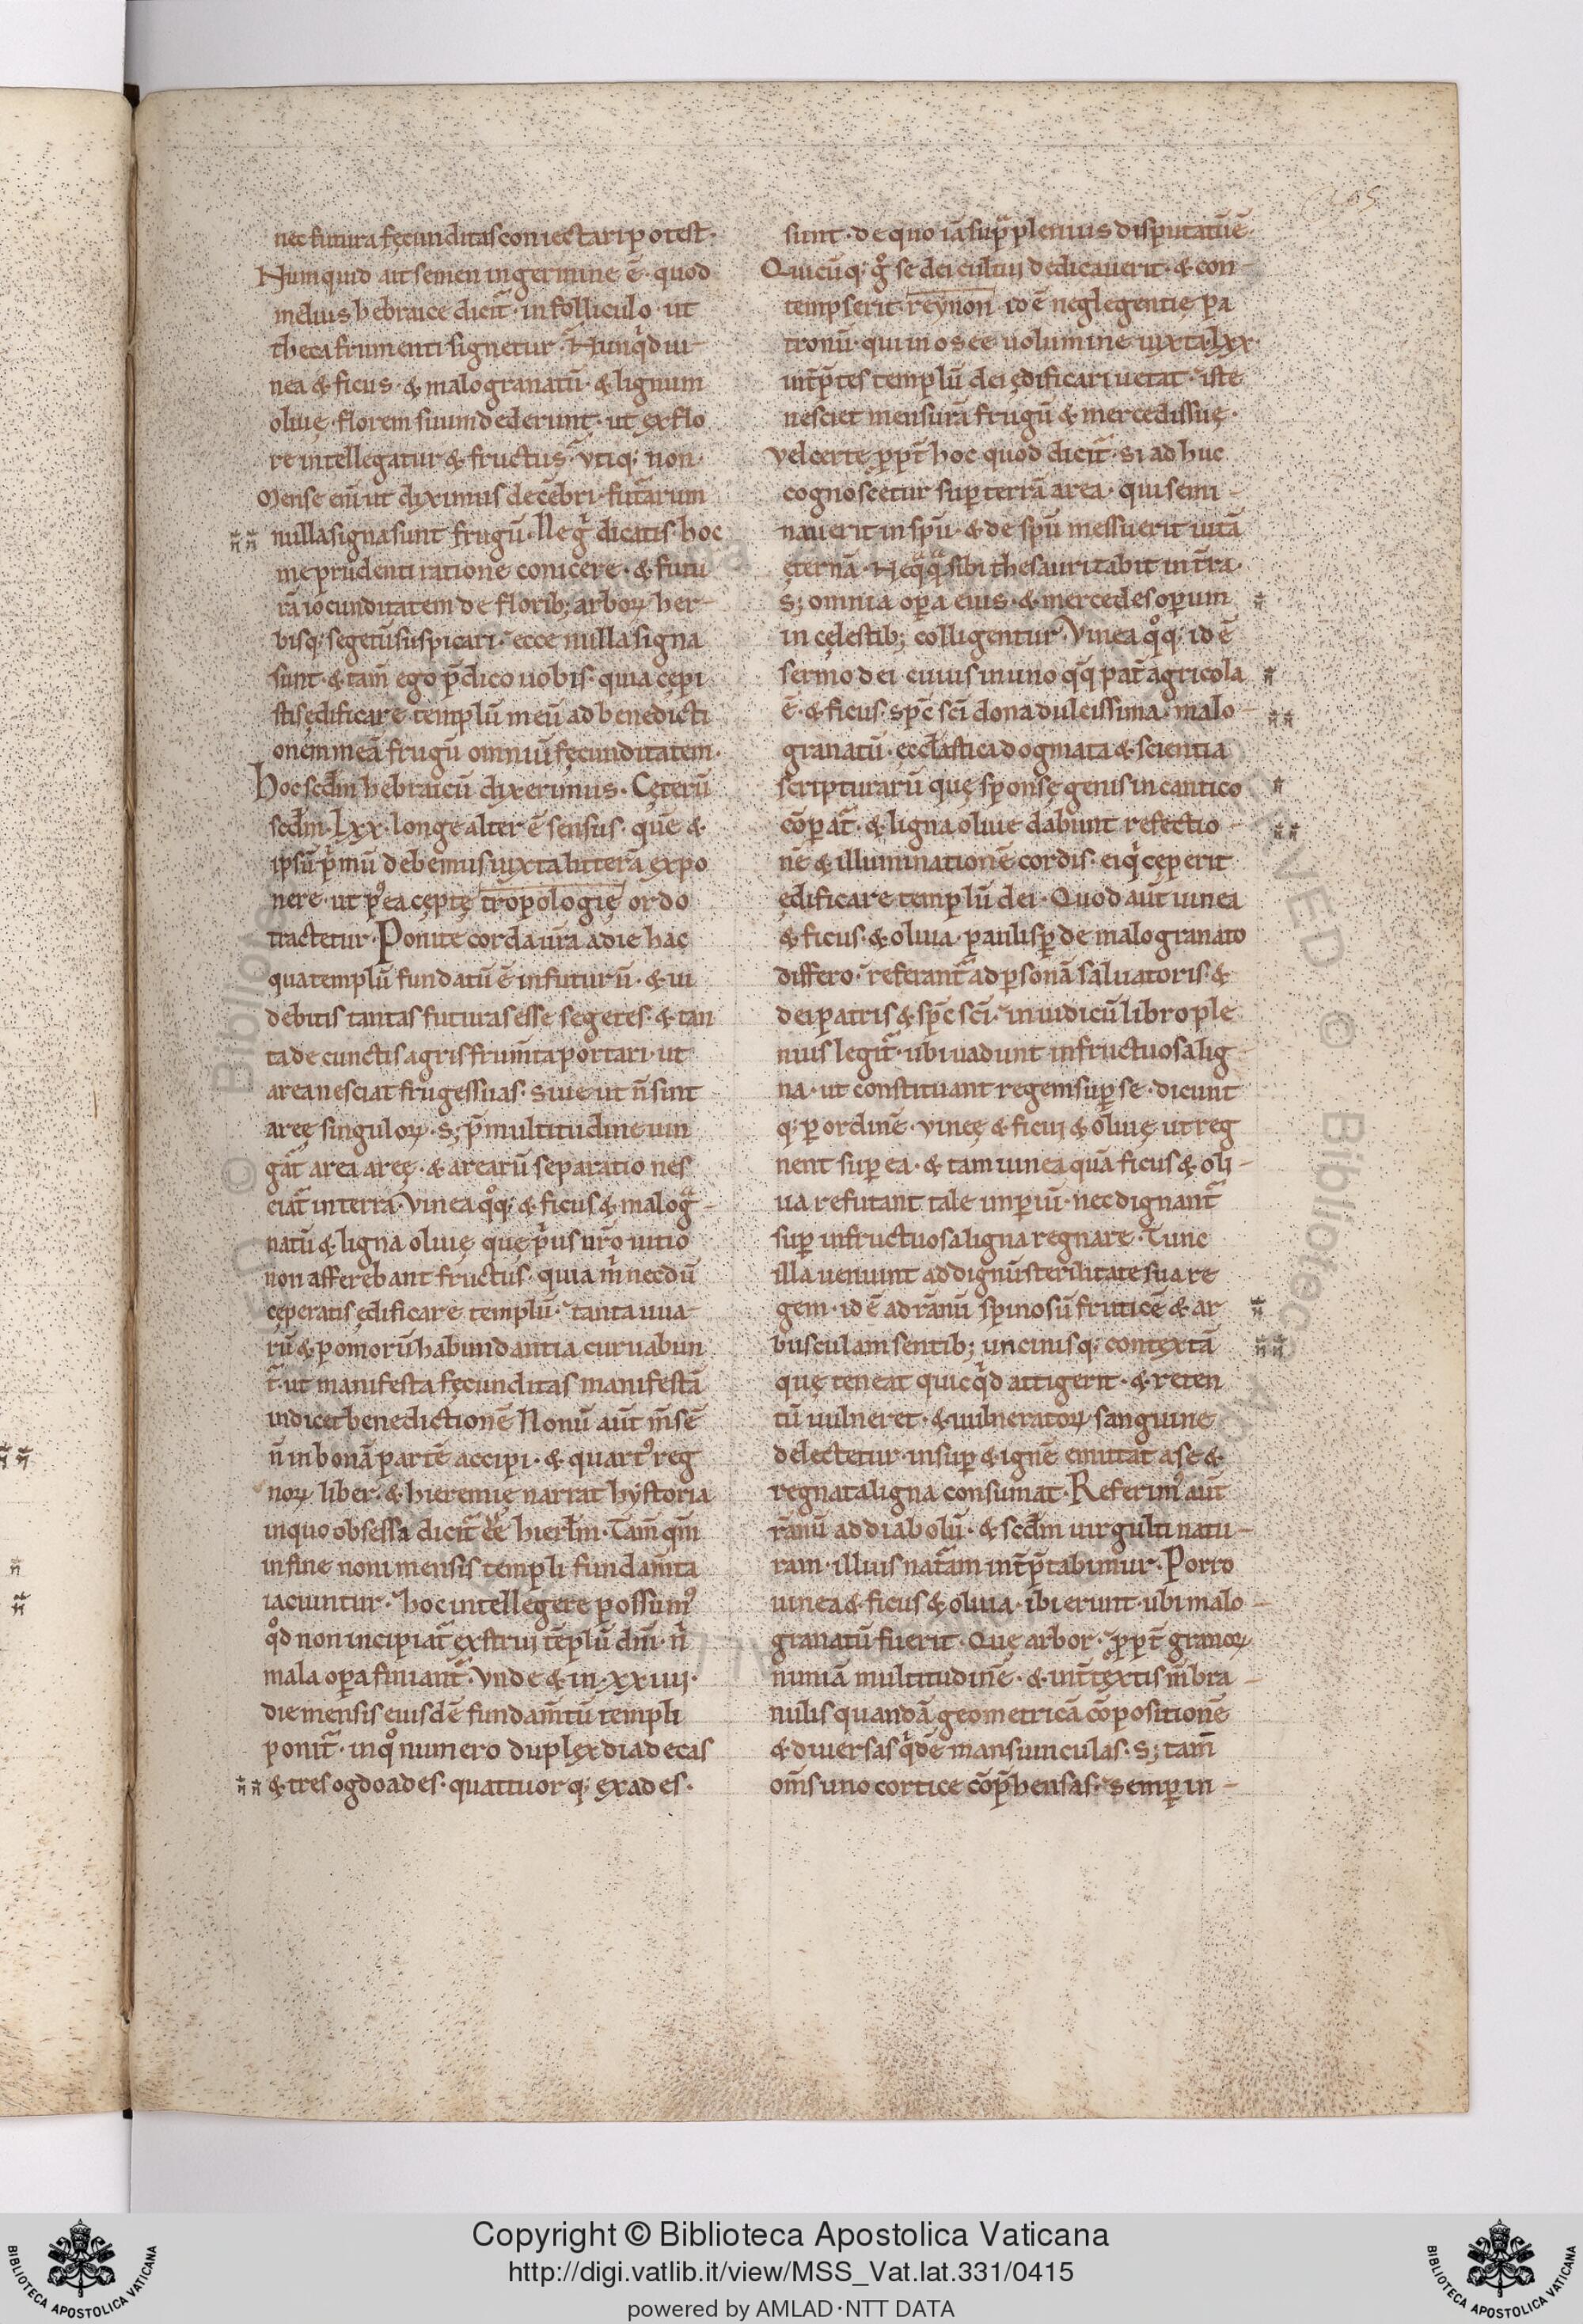 nec futura fęcunditas coniectari potest·
Numquid ait semen in germine ē· quod
melius hebraice dicit̄· in folliculo· ut
theca frumenti signetur· Nunqͥd ui-
nea & ficus· & malogranatū· & lignum
oliuę· florem suum dederunt· ut ex flo
re intellegatur & fructus· vtiq; non·
Mense eni̅ ut diximus decēbri· futarum
nulla signa sunt frugū· Ne gͥ dicatis hoc
me prudenti ratione conicere· & futu
rā iocunditatem de florib; arboꝝ her-
bisq; segetū suspicari· ecce nulla signa
sunt· & tam̄ ego p̄dico uobis· quia cępi
stis ędificare templū meū ad benedicti
onem meā frugū omniū fęcunditatem·
Hoc scdm̄ hebraicū dixerimus· Cęterū
scdm̄· lxx· longe alter ē sensus· quē &
ipsū pͥmū debemus iuxta litterā expo
nere· ut pꝰea cępte̜ tropologię ordo
tractetur· Ponite corda ur̄a a die hac
qua templū fundatū ē in futurū· & ui
debitis tantas futuras esse segetes· & tan
ta de cunctis agris frum̄ta portari· ut
area nesciat fruges suas· Siue ut n̄ sint
areę singuloꝝ· S; p̄ multitudine iun
gat̄ area areę· & arearū separatio nes
ciat̄ in terra· Vinea qͦq; & ficus & malogͣ-
natū & ligna oliuę quę pͥus nr̄o uitio
non afferebant fructus· quia m̄ necdū
cęperatis ędificare templū· tanta uua-
rū & pomorū habundantia curuabun
t̄· ut manifesta fęcunditas manifestā
indicet benedictionē Nonū aut̄ m̄sē
n̄ in bonā partē accipi· & quartꝰ reg
noꝝ liber· & hieremię narrat hystoria
in quo obsessa dicit̄ eē hierl̄m· Tam̄ qm̄
in fine noni mensis templi fundam̄ta
iaciuntur· hoc intellegere possumꝰ
qͦd non incipiat̄ exstrui tēplū dn̄i· nͥ
mala opa finiant̄· Vnde & in· xxiiij·
die mensis eiusdē fundam̄tū templi
ponit̄· in qͦ numero duplex diadecas
& tres ogdoades· quattuorq; exades·
sunt· de quo iā supͣ plenius disputatū ē·
Quicūq; gͦ se dei cultui dedicauerit· & con-
tempserit· reynon· id ē neglegentię pa
tronū· qui in osee uolumine iuxta lxx·
int̄p̄tes templū dei ędificari uetat· iste
nesciet mensurā frugū & mercedis suę·
vel certe ꝓpt̄ hoc quod dicit̄· si ad huc
cognoscetur sup terrā area· qui semi-
nauerit in spū· & de spū messuerit uitā
ęternā· Neqͣqͣ sibi thesaurizabit in tr̄a·
s; omnia opa eius· & mercedes operum
in cęlestib; colligentur· Vinea qͦq; id ē
sermo dei cuius in uno qͦq; pat̄ agricola
ē· & ficus sp̄c sc̄i dona dulcissima· malo-
granatū· eccl̄astica dogmata & scientia
scripturarū quę sponsę genis in cantico
cōparat̄· & ligna oliue dabunt refectio-
nē & illuminationē cordis· ei qͥ cęperit
ędificare templū dei· Quod aut̄ uinea
& ficus· & oliua· paulisp de malogranato
differo· referant̄ ad psonā saluatoris· &
dei patris & sp̄c sc̄i· in iudicū libro ple
nius legit̄· ubi uadunt infructuosa lig-
na· ut constituant regem sup se· dicunt
q; p ordinē· vineę & ficui & oliuę ut reg
nent sup ea· & tam uinea quā ficus & oli-
ua refutant tale impiū· nec dignant̄
sup infructuosa ligna regnare· Tunc
illa ueniunt ad dignū sterilitate sua re
gem· id ē ad ranū spinosū fruticē & ar
busculam sentib; uncinisq; contextā
quę teneat quicqͥd attigerit· & reten
tū uulneret· & uulneratoꝝ sanguine
delectetur· insup & ignē emittat a se &
regnata ligna consumat· Referimꝰ aut̄
ranū ad diabolū· & scdm̄ uirgulti natu-
ram· illius nat̄am int̄p̄tabimur· Porro
uinea & ficus & oliua· ibi erunt· ubi malo-
granatū fuerit· Quę arbor· ꝓpt̄ granoꝝ
nimiā multitudinē· & int̄textis m̄bra-
nulis quandā geometricā cōpositionē
& diuersas qͥdē mansiunculas· s; tam̄
om̄s uno cortice cōp̄hensas· semp in-
© Biblioteca
Copyright © Biblioteca Apostolica Vaticana
http://digi.vatlib.it/view/MSS_Vat.lat.331/0415
powered by AMLAD·NTT DATA
BIBLIOTECA APOSTOLICA VATICANA
BIBLIOTECA APOSTOLICA VATICANA